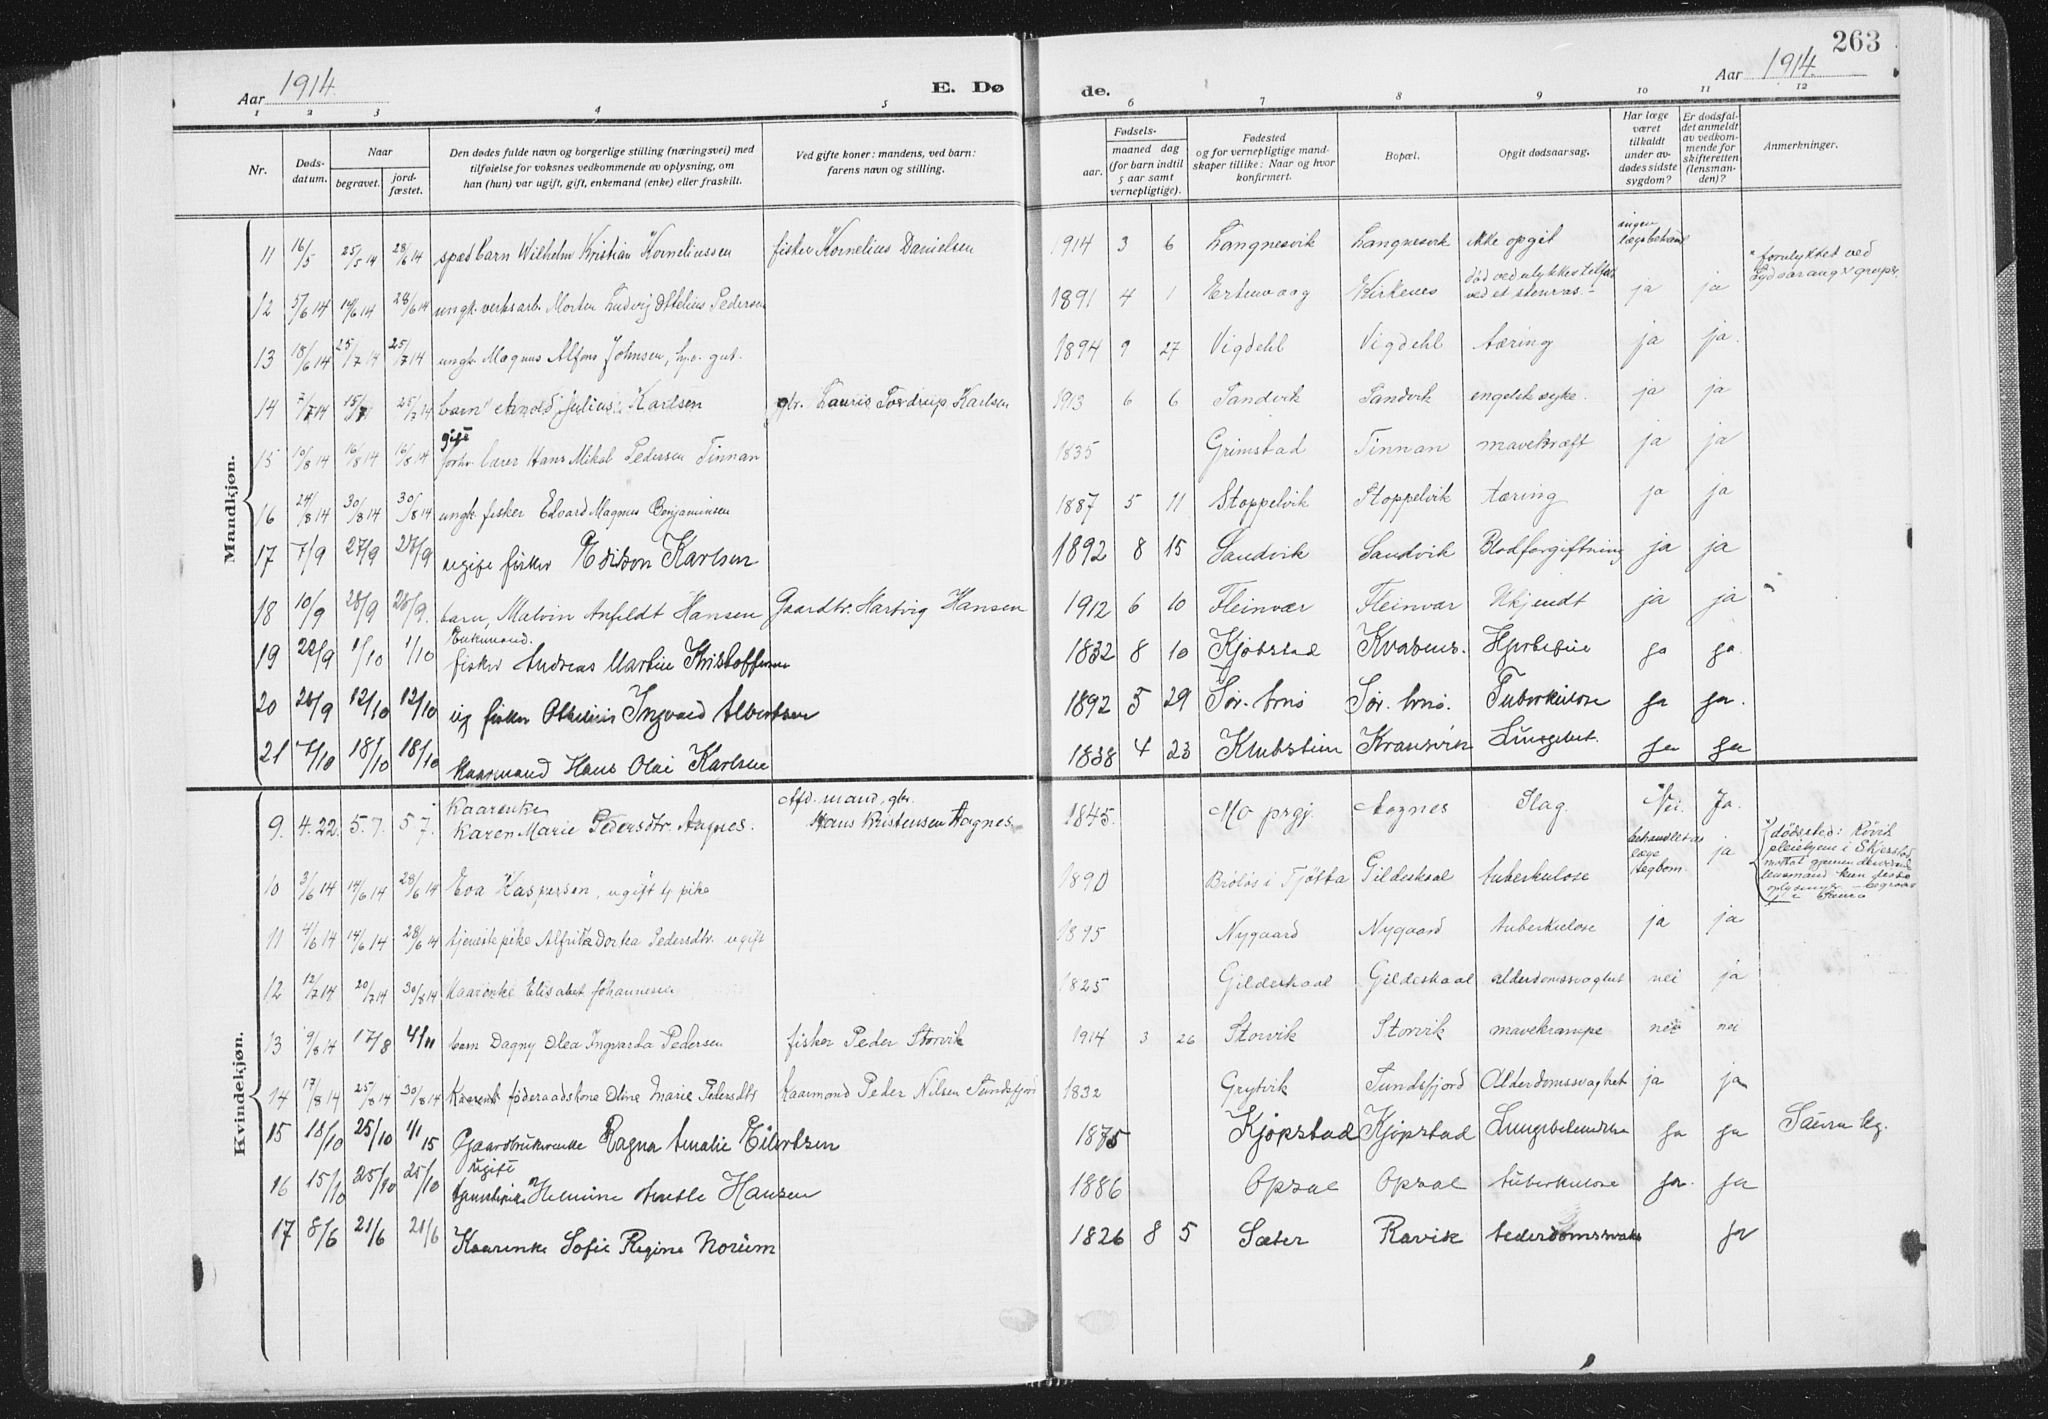 263
Aar 1914.
E. Dø
de.
Aar 1914.
1 2 3 4 5 6 7 8 9 10 11 12
Nr.
Døds-
datum.
Naar
begravet.
jord-
fæstet.
Den dødes fulde navn og borgerlige stilling (næringsvei) med
tilføielse for voksnes vedkommende av oplysning, om
han (hun) var ugift, gift, enkemand (enke) eller fraskilt.
Ved gifte koner: mandens, ved barn:
farens navn og stilling.
Fødsels-
aar.
maaned dag
(for barn indtil
5 aar samt
vernepligtige).
Fødested
og for vernepligtige mand-
skaper tillike: Naar og hvor
konfirmert.
Bopæl.
Opgit dødsaarsag.
Har læge
været
tilkaldt
under av-
dødes sidste
sygdom?
Er dødsfal-
det anmeldt
av vedkom-
mende for
skifteretten
(lensman-
den)?
Anmerkninger.
Mandkjøn.
11 16/5 25/5 14 28/6 14 spædbarn Wilhelm Kristian Korneliussen fisker Kornelius Danielsen 1914 3 6 Langnesvik Langnesvik ikke opgit ingen lægebehandl
12 5/6 14 14/6 14 28/6 14 ungk. verksarb. Morten Ludvig Ottelius Pedersen 1891 4 1 Ertenvaag Kirkenes død ved ulykkestilfæl ved et stenras ja ja forulykket ved Sydvaranger gruper.
13 18/6 14 25/7 14 25/7 14 ungk. Magnus Alfons Johnsen, hjv. gut. 1894 9 27 Vigdehl Vigdehl tæring ja ja.
14 7/7 14 15/7 25/7 14 barn Arnold Julius Karlsen gbr. Lauris Tordrup Karlsen 1913 6 6 Sandvik Sandvik engelsk syke. ja ja
15 10/8 14 16/8 14 16/8 14 gift forhv. lærer Hans Mikal Pedersen Finnan 1835 Grimstad Finnan mavekræft ja ja
16 24/8 14 30/8 14 30/8 14 ungk. fisker Edvard Magnus Benjaminsen 1887 5 11 Stoppelvik Stoppelvik tæring ja ja
17 7/9 27/9 27/9 ugift fisker Edison Karlsen 1892 8 15 Sandvik Sandvik Blodforgiftning ja ja
18 10/9 28/9 28/9. barn, Malvin Anfeldt Hansen Gaardbr. Hartvig Hansen 1912 6 10 Fleinvær Fleinvær Ukjendt ja ja
19 22/9 1/10 1/10 Enkemand. fisker Andreas Martin Kristoffersen 1832 8 10 Kjøbstad Hjertefeil ja ja.
20 28/9 12/10 12/10 ug fisker Othelius Ingvard Albertsen 1892 5 29 Sør. Arnø Sør. Arnø. Tuberkulose ja ja.
21 7/10 18/10 18/10 Kaarmand Hans Olai Karlsen 1838 4 23 Klubstein Kransvik Lungebet. ja ja
Kvindekjøn.
9. 4.22. 5.7. 5 7. Kaarenke Karen Marie Pedersdtr. Aagnes. Afd. mand, gbr. Hans Kristensen Aagnes 1845. Mo prgj. Aagnes Slag. Nei. Ja.
10 3/6 14 14/6 14 28/6 14 Eva Kaspersen, ugift tj pike 1890 Brøløs i Tjøtta Gildeskaal tuberkulose behandlet av læge Tegbom. ja dødssted: Røvik pleiehjem i Skjerstad mottat gjennem derværende lensmand kun disse oplysninger - begravet
11 4/6 14 14/6 14 28/6 14 tjenestepike Alfrida Dortea Pedersdtr. ugift 1895 Nygaard Nygaard tuberkulose ja ja
12 12/7 14 20/7 14 30/8 14 Kaarenke Elisabet Johannesen 1825 Gildeskaal Gildeskaal alderdomssvaghet nei ja
13 9/8 14 17/8 4/11 barn Dagny Olea Ingvarda Pedersen fisker Peder Storvik 1914 3 26 Storvik Storvik mavekrampe nei nei
14 17/8 14 25/8 14 30/8 14 Kaarenk føderaadskone Oline Marie Pedersdtr Kaarmond Peder Nilsen Sundsfjord 1832 Grytvik Sundsfjord Alderdomssvaghet ja ja
15 18/10 25/10 1/1 15 Gaardbrukerenke Ragna Amalie Eilertsen 1875 Kjøpstad Kjøpstad Lungebetændelse ja ja
16 15/10 25/10 25/10 ugift tjenestepike Helmine Amalie Hansen 1886 Opsal Opsal tuberkulose ja. ja
17 8/6 21/6 21/6 Kaarenke Sofie Regine Norum 1826 8 5 Sæter Ravik alderdomssvakh ja